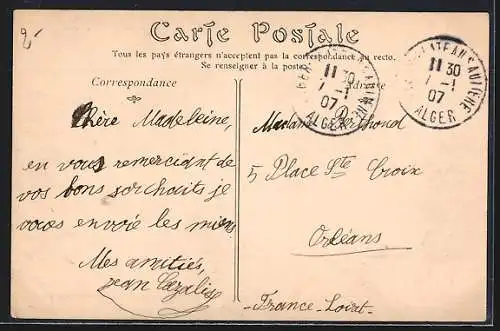 Carte Postale
Tous les pays étrangers n'acceptent pas la correspondance au recto.
Se renseigner à la poste
Correspondance
Adresse
11 30
7 -1
07
ALGER
PLATEAU SAULIÈRE
11 30
7 -1
07
ALGER
Chère Madeleine,
en vous remerciant de
vos bons souhaits je
vous envoie les miens.
Mes amitiés,
Jean Cazalis
Madame
5 Place Ste Croix
Orléans
-France-Loiret-